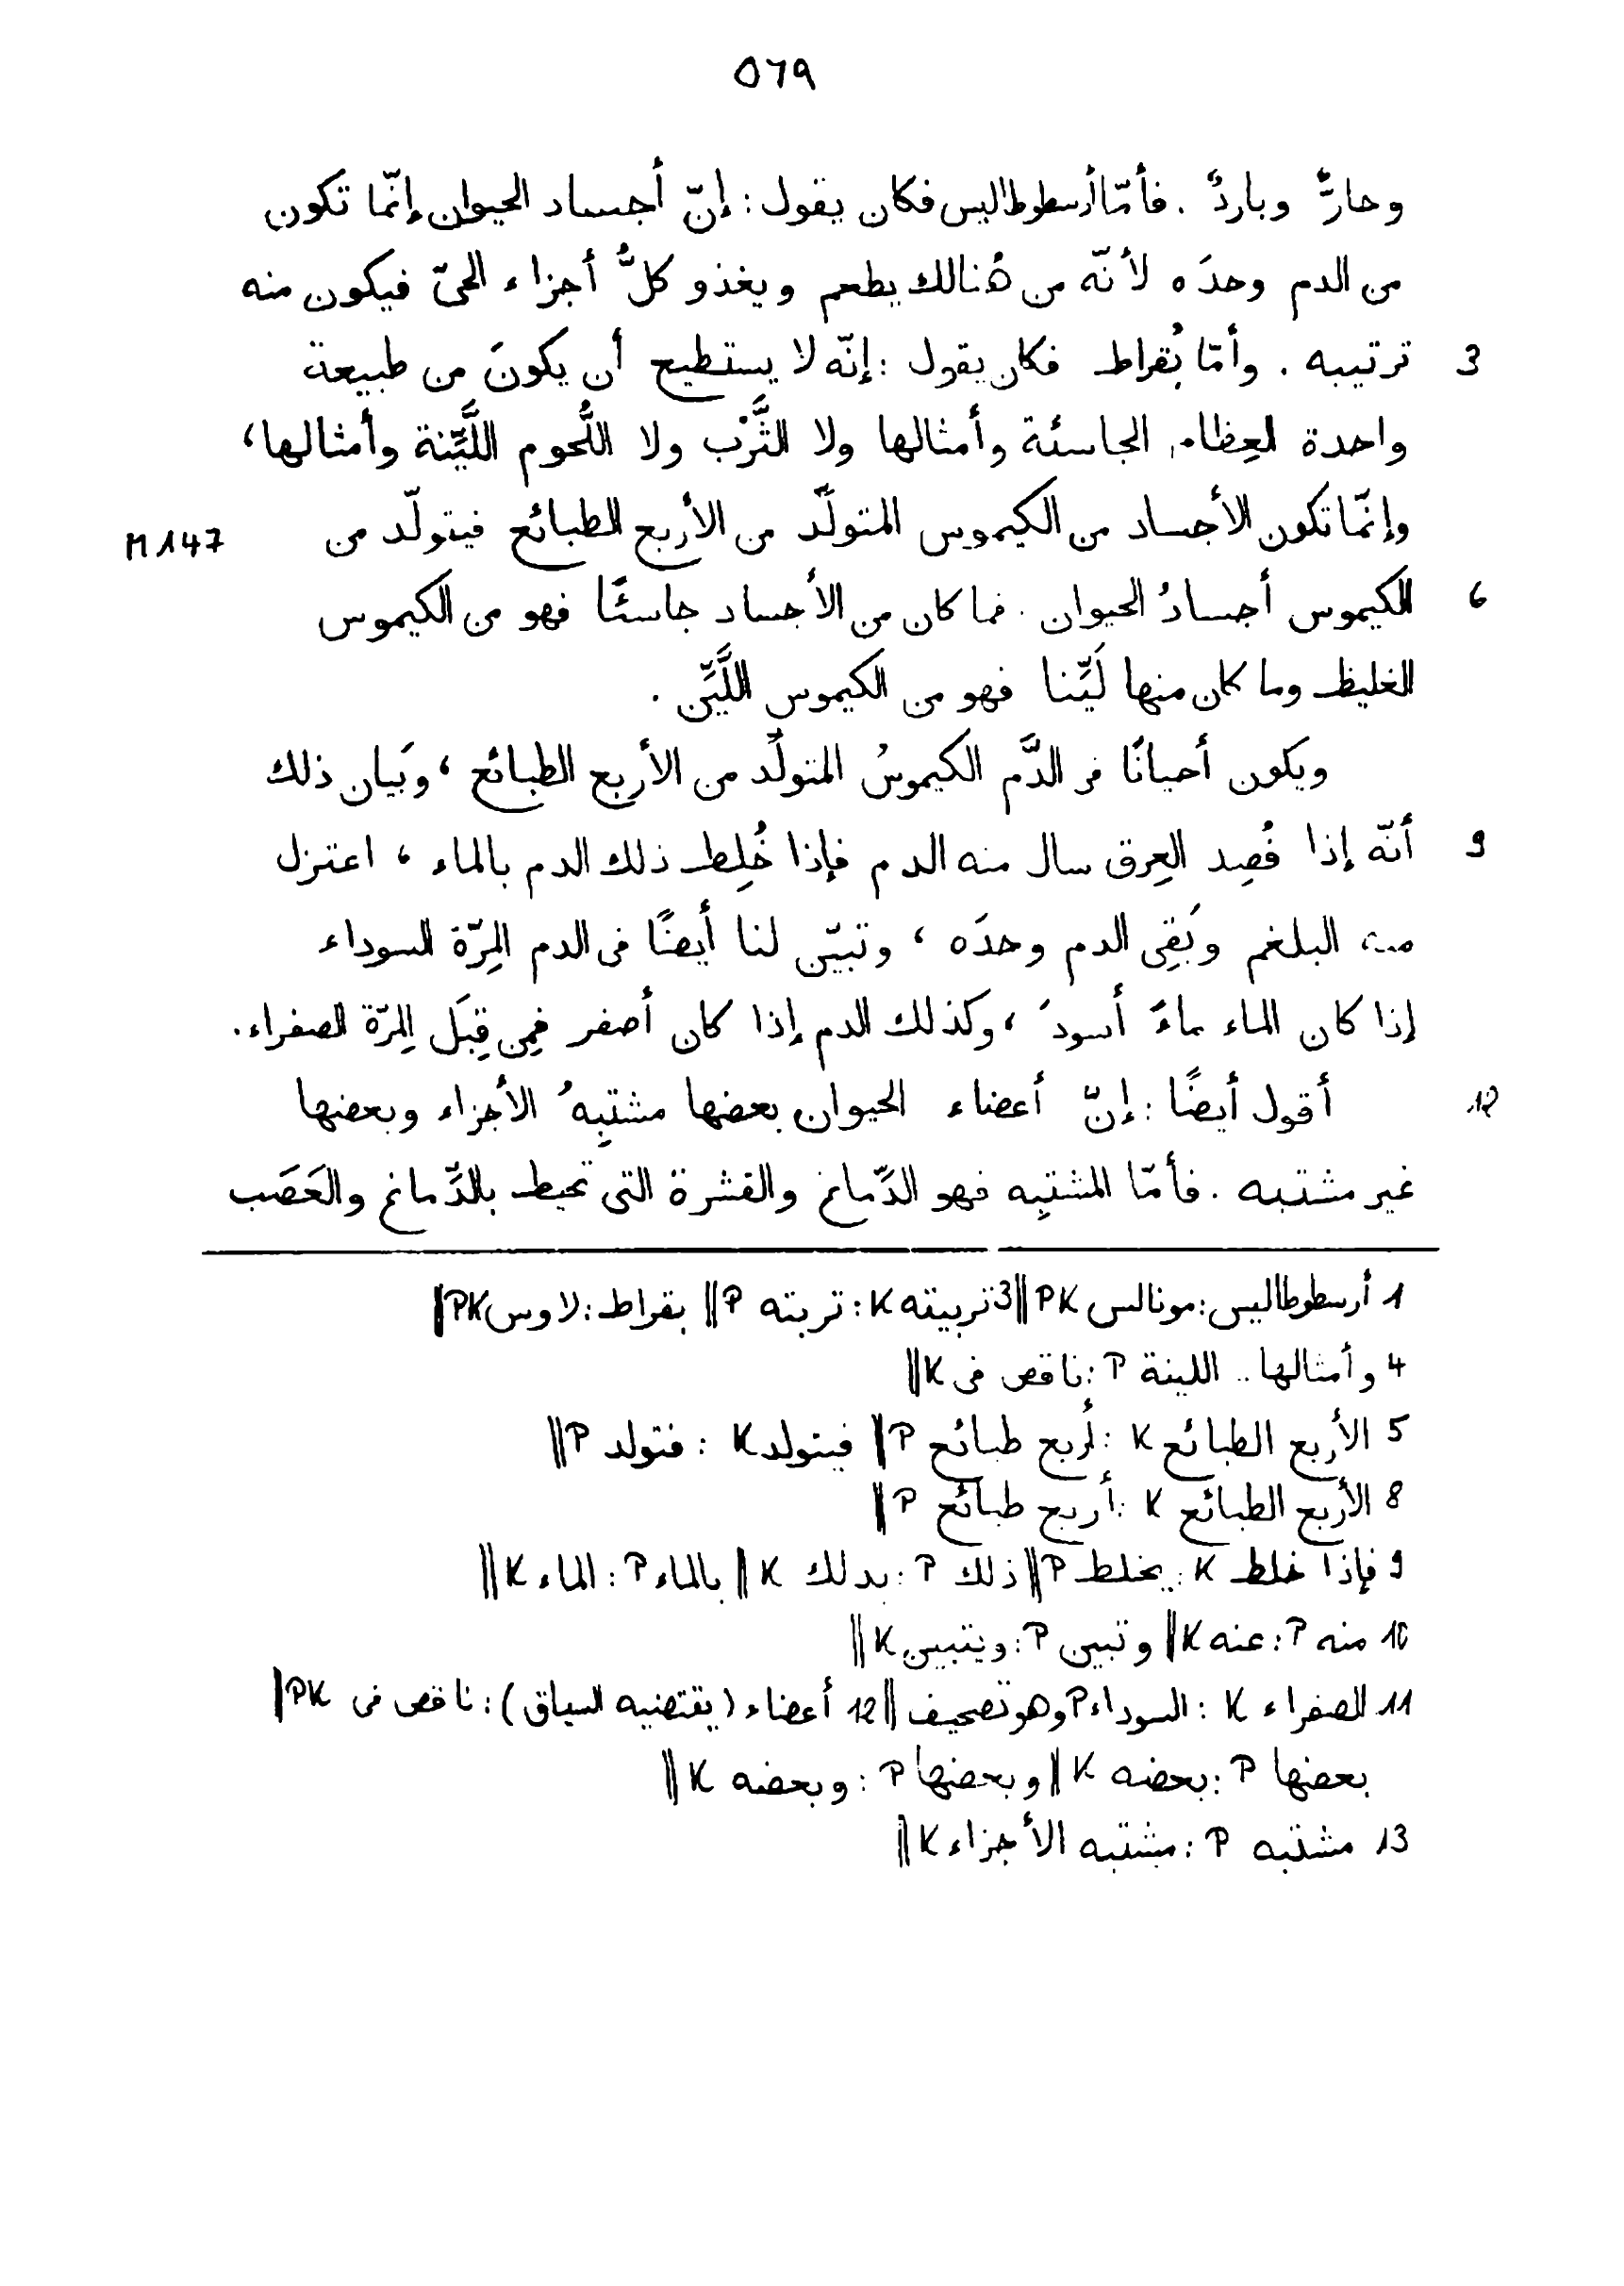 ٥٦٩
وحارٌّ وباردٌ . فأمّا أرسطوطاليس فكان يقول : إنّ أجساد الحيوان إنّما تكون
من الدم وحدَه لأنّه من هُنالك يطعم ويغذو كلُّ أجزاء الحىّ فيكون منه
3 ترتيبه . وأمّا بُقراط فكان يقول : إنّه لا يستطيع أن يكونَ من طبيعة
واحدة العِظام الجاسئة وأمثالها ولا الثَّرْب ولا اللُّحوم اللَّيِّنة وأمثالها ،
وإنّما تكون الأجساد من الكيموس المتولِّد من الأربع الطبائع فيتولّد من M 147
6 الكيموس أجسادُ الحيوان . فما كان من الأجساد جاسئًا فهو من الكيموس
الغليظ وما كان منها لَيِّنا فهو من الكيموس اللَّيِّن .
ويكون أحيانًا فى الدَّم الكيموسُ المتولِّد من الأربع الطبائع ، وبَيان ذلك
9 أنّه إذا فُصِد العِرق سال منه الدم فإذا خُلِط ذلك الدم بالماء ، اعتزل
منه البلغم وبَقِى الدم وحدَه ، وتبيّن لنا أيضًا فى الدم المِرّة السوداء
إذا كان الماء ماءً أسودَ ، وكذلك الدم إذا كان أصفر فمِن قِبَل المِرّة الصفراء .
12 أقول أيضًا : إنّ أعضاء الحيوان بعضها مشتبِهُ الأجزاء وبعضها
غير مشتبه . فأمّا المشتبِه فهو الدِّماغ والقشرة التى تحيط بالدِّماغ والعَصَب
1 أرسطوطاليس : مونالس PK || 3 تربيته K : تربته P || بقراط : لاوس PK ||
4 وأمثالها .. اللينة P : ناقص فى K ||
5 الأربع الطبائع K : أربع طبائع P || فيتولد K : فتولد P ||
8 الأربع الطبائع K : أربع طبائع P ||
9 فإذا خلط K : يخلط P || ذلك P : بدلك K || بالماء P : الماء K ||
10 منه P : عنه K || وتبين P : ويتبين K ||
11 الصفراء K : السوداء P وهو تصحيف || 12 أعضاء (يقتضيه السياق) : ناقص فى PK ||
بعضها P : بعضه K || وبعضها P : وبعضه K ||
13 مشتبه P : مشتبه الأجزاء K ||